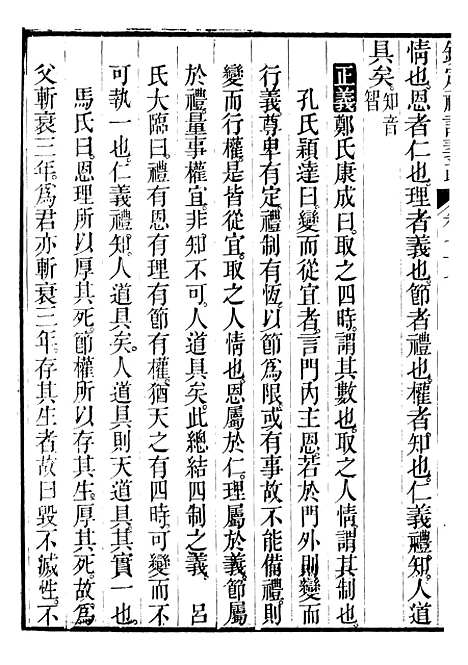 情也恩者仁也理者義也節者禮也權者知也仁義禮知人道
具矣知音智
正義鄭氏康成曰取之四時謂其數也取之人情謂其制也
孔氏穎達曰變而從宜者言門內主恩若於門外則變而
行義尊卑有定禮制有恆以節爲限或有事故不能備禮則
變而行權是皆從宜取之人情也恩屬於仁理屬於義節屬
於禮量事權宜非知不可人道具矣此總結四制之義 呂
氏大臨曰禮有恩有理有節有權猶天之有四時可變而不
可執一也仁義禮知人道具矣人道具則天道具其實一也
馬氏曰恩理所以厚其死節權所以存其生厚其死故爲
父斬衰三年爲君亦斬衰三年存其生者故曰毀不滅性不